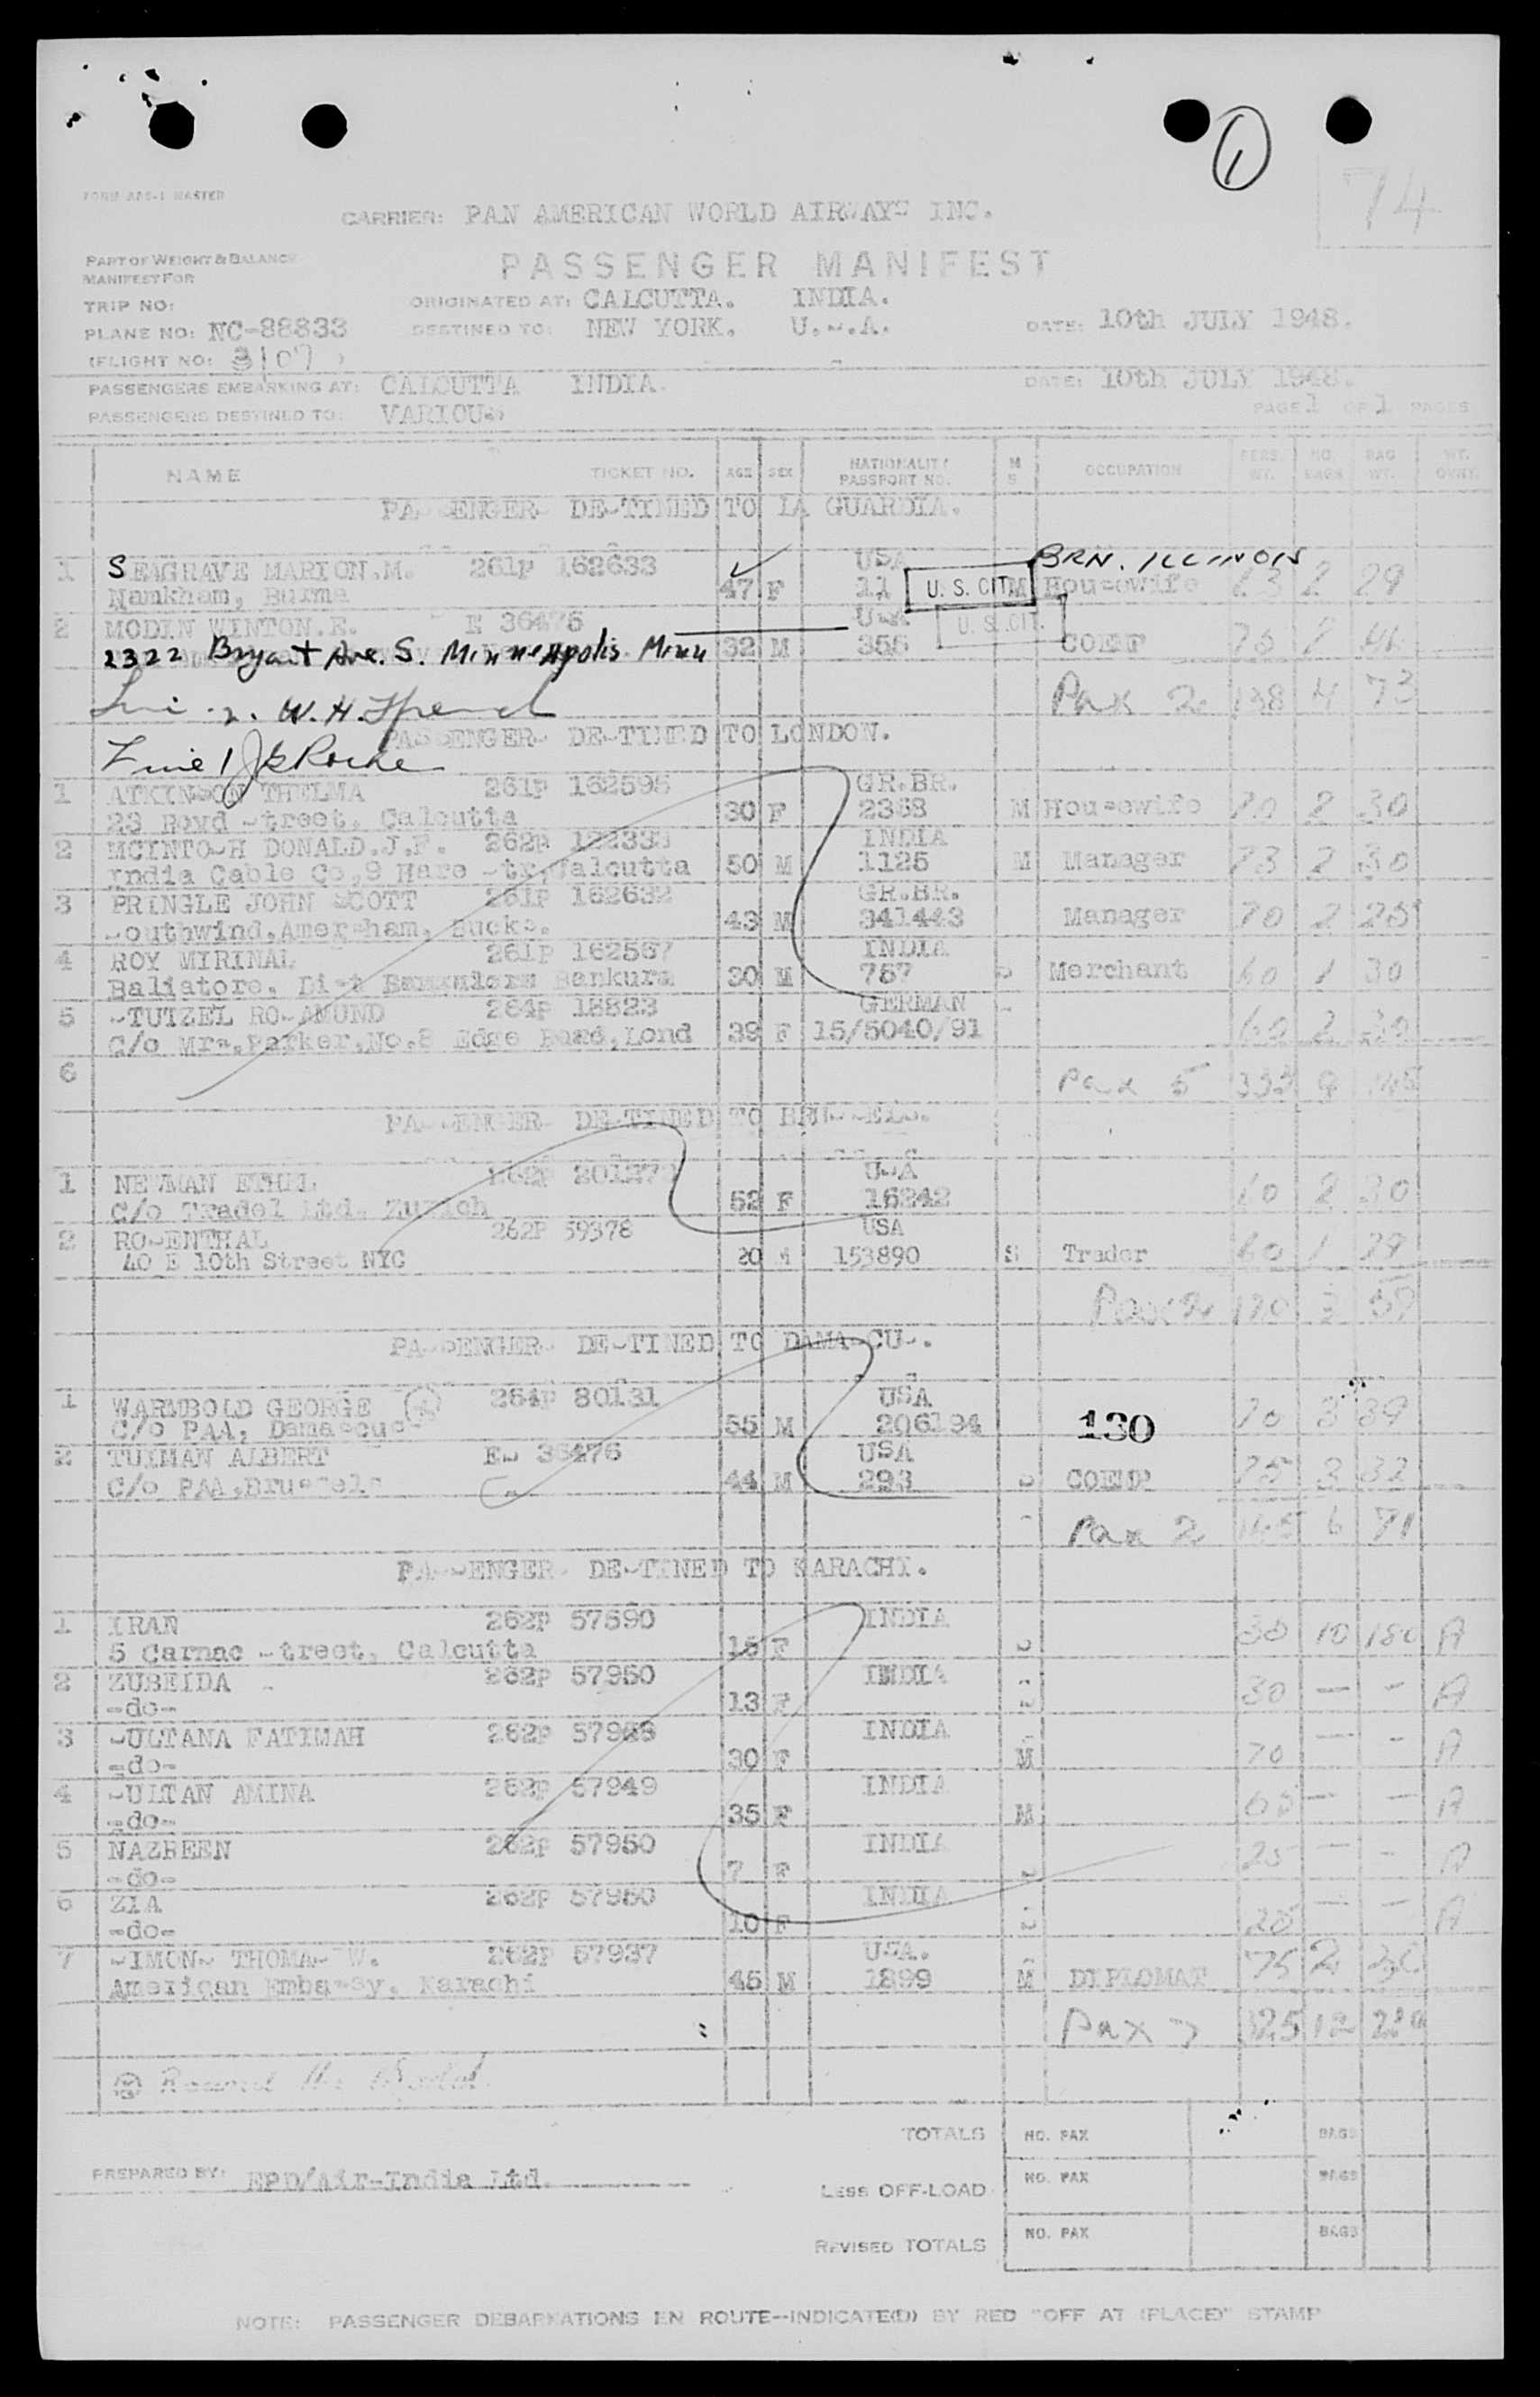 1
74
FORM APS-1 MASTER
CARRIER: PAN AMERICAN WORLD AIRWAYS INC.
PART OF WEIGHT & BALANCE
MANIFEST FOR
PASSENGER MANIFEST
TRIP NO:
ORIGINATED AT: CALCUTTA. INDIA.
PLANE NO: NC-88833
DESTINED TO: NEW YORK. U.S.A.
DATE: 10th JULY 1948.
(FLIGHT NO: 3107 )
PASSENGERS EMBARKING AT: CALCUTTA INDIA.
DATE: 10th JULY 1948.
PASSENGERS DESTINED TO: VARIOUS
PAGE 1 OF 1 PAGES
NAME TICKET NO. AGE SEX NATIONALITY PASSPORT NO. M S OCCUPATION PERS. WT. NO. BAGS BAG WT. WT. OVRT.
PASSENGERS DESTINED TO LA GUARDIA.
BRN. ILLINOIS
1 SEAGRAVE MARION.M. 261P 162633 USA
Namkham, Burma 47 F 11 U. S. CIT. M Housewife 63 2 29
2 MODIN WINTON.E. E 36476 USA U. S. CIT.
2322 Bryant Ave. S. Minneapolis Minn 32 M 356 COEMP 75 2 44
Pax 2 138 4 73
Line 2. W.H.
PASSENGERS DESTINED TO LONDON.
Line 1
1 ATKINSON THELMA 261P 162595 GR.BR.
23 Royd Street. Calcutta 30 F 2368 M Housewife 70 2 30
2 MCINTOSH DONALD.J.F. 262P INDIA
India Cable Co,9 Hare Str,Calcutta 50 M 1125 M Manager 73 2 30
3 PRINGLE JOHN SCOTT 261P 162632 GR.BR.
Southwind.Amersham. Bucks. 43 M 341443 Manager 70 2 25
4 ROY MIRINAL 261P 162567 INDIA
Baliatore. Dist Bankura 30 M 757 S Merchant 60 1 30
5 STUIZEL ROSAMUND 264P 18823 GERMAN
C/o Mrs.Parker.No.8 Edge Road,Lond 39 F 15/5040/91 60 2 30
6 Pax 5 333 9 145
PASSENGERS DESTINED TO BRUSSELS.
1 NEWMAN ETHEL 262P USA
C/o Tradel Ltd. Zurich 52 F 16242 60 2 30
2 ROSENTHAL 262P 59378 USA
40 E 10th Street NYC 20 M 153890 S Trader 60 1 29
Pax 2 120 3 59
PASSENGERS DESTINED TO DAMASCUS.
1 WARMBOLD GEORGE 264P 80131 USA
C/o PAA, Damascus 55 M 206194 130 70 3 39
2 TUXMAN ALBERT ES 36476 USA
C/o PAA,Brussels 44 M 293 S COEMP 75 3 32
Pax 2 145 6 71
PASSENGERS DESTINED TO KARACHI.
1 IRAN 262P 57590 INDIA
5 Carnac Street, Calcutta 15 F S 30 10 180 A
2 ZUBEIDA 262P 57950 INDIA
-do- 13 F S 30 — - A
3 SULTANA FATIMAH 262P INDIA
-do- 30 F M 70 — - A
4 SULTAN AMINA 262P 57949 INDIA
-do- 35 F M — - A
5 NAZREEN 262P 57950 INDIA
-do- 7 F S 25 — - A
6 ZIA 262P 57950 INDIA
-do- 10 F S — - A
7 SIMONS THOMAS W. 262P 57937 USA.
American Embassy. Karachi 45 M 1899 M DIPLOMAT 75 2
Pax 7 325 12
TOTALS NO. PAX BAGS
PREPARED BY: EPD/Air-India Ltd.
LESS OFF-LOAD NO. PAX BAGS
REVISED TOTALS NO. PAX BAGS
NOTE: PASSENGER DEBARKATIONS EN ROUTE--INDICATE(D) BY RED "OFF AT (PLACE)" STAMP